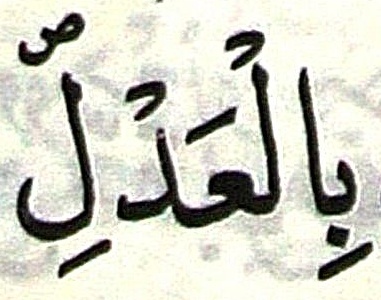 بِالْعَدْلِ ۖص